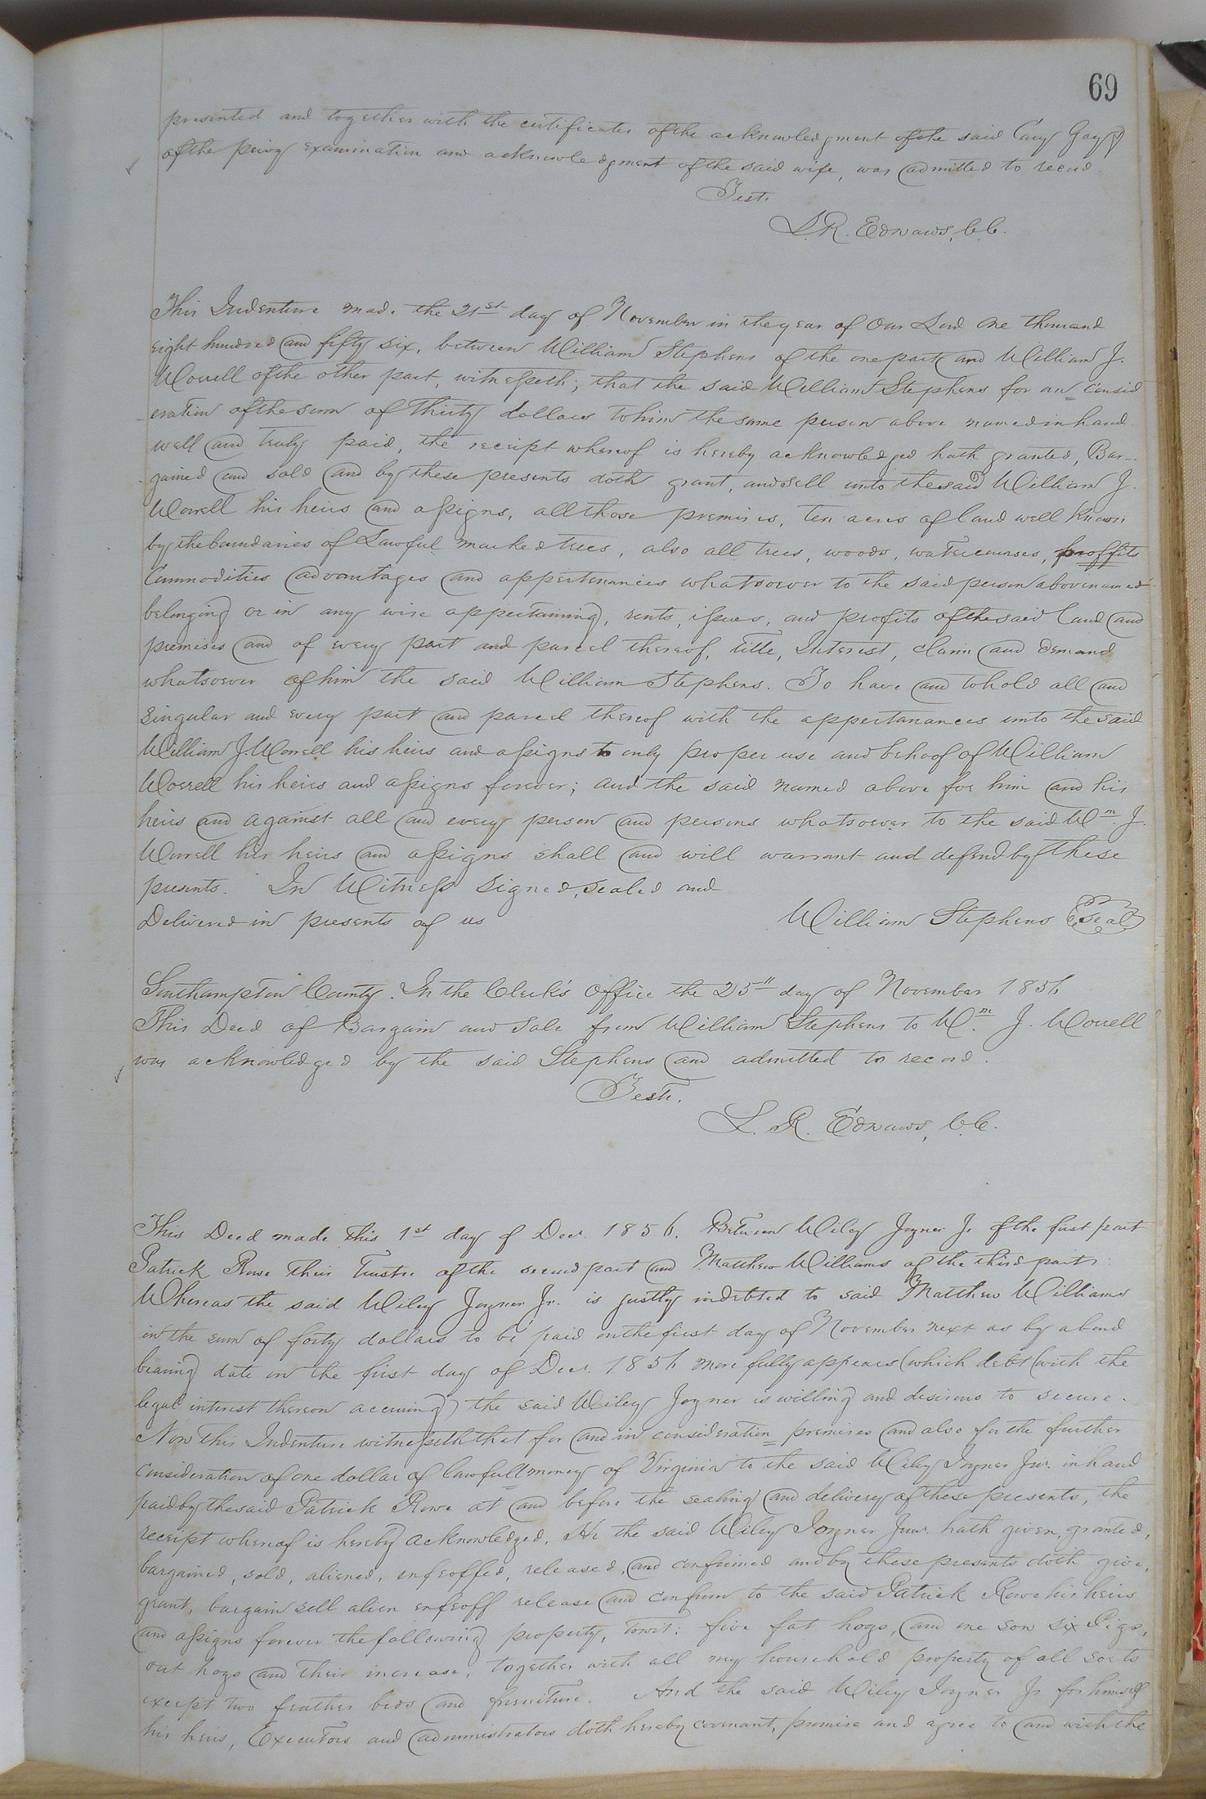 69
presented and together with the certificates of the acknowledgment of the said Cary Gay &
of the privy examination and acknowledgment of the said wife, was admitted to record
Test.
L. R. Edwards, C.C.
This Indenture made the 21st day of November in the year of Our Lord One thousand
eight hundred and fifty six, between William Stephens of the one part and William J.
Worrell of the other part, witnesseth; that the said William Stephens for an consid
eration of the sum of thirty dollars to him the same person above named in hand
well and truly paid, the receipt whereof is hereby acknowledged hath granted, Bar-
gained and sold and by these presents doth grant, and sell unto the said William J.
Worrell his heirs and assigns, all those premises, ten acres of land well known
by the boundaries of Lawful marked trees, also all trees, woods, watercourses, proffits
Commodities advantages and appertenances whatsoever to the said person above named
belonging or in any wise appertaining, rents, issues, and profits of the said land and
premises and of every part and parcel thereof, title, Interest, claim and demand
whatsoever of him the said William Stephens. To have and to hold all and
Singular and every part and parcel thereof with the appertanances unto the said
William J. Worrell his heirs and assigns to only proper use and behoof of William
Worrell his heirs and assigns forever; and the said named above for him and his
heirs and against all and every person and persons whatsoever to the said Wm J.
Worrell his heirs and assigns shall and will warrant and defend by these
presents. In Witness Signed, sealed and
Delivered in presents of us William Stephens Seal
Southampton County. In the Clerk's Office the 25th day of November 1856
This Deed of Bargain and Sale from William Stephens to Wm. J. Worrell
was acknowledged by the said Stephens and admitted to record.
Teste.
L. R. Edwards, C.C.
This Deed made this 1st day of Decr. 1856. Between Wiley Joyner Jr of the first part
Patrick Rowe their Trustee of the second part and Matthew Williams of the third part:
Whereas the said Wiley Joyner Jr. is justly indebted to said Matthew Williams
in the sum of forty dollars to be paid on the first day of November next as by a bond
bearing date on the first day of Decr. 1856 more fully appears (which debt (with the
legal interest thereon accruing) the said Wiley Joyner is willing and desirous to secure.
Now this Indenture witnesseth that for and in consideration premises and also for the further
consideration of one dollar of lawfull money of Virginia to the said Wiley Joyner Junr. in hand
paid by the said Patrick Rowe at and before the sealing and delivery of these presents, the
receipt whereof is hereby acknowledged, He the said Wiley Joyner Junr. hath given, granted,
bargained, sold, aliened, enfeoffed, released, and confirmed and by these presents doth give,
grant, bargain sell alien enfeoff release and confirm to the said Patrick Rowe his heirs
and assigns forever the following property, towit: five fat hogs, and one sow six Pigs,
out hogs and their increase, together with all my household property of all sorts
except two feather beds and furniture. And the said Wiley Joyner Jr for himself
his heirs, Executors and administrators doth hereby covenant, promise and agree to and with the